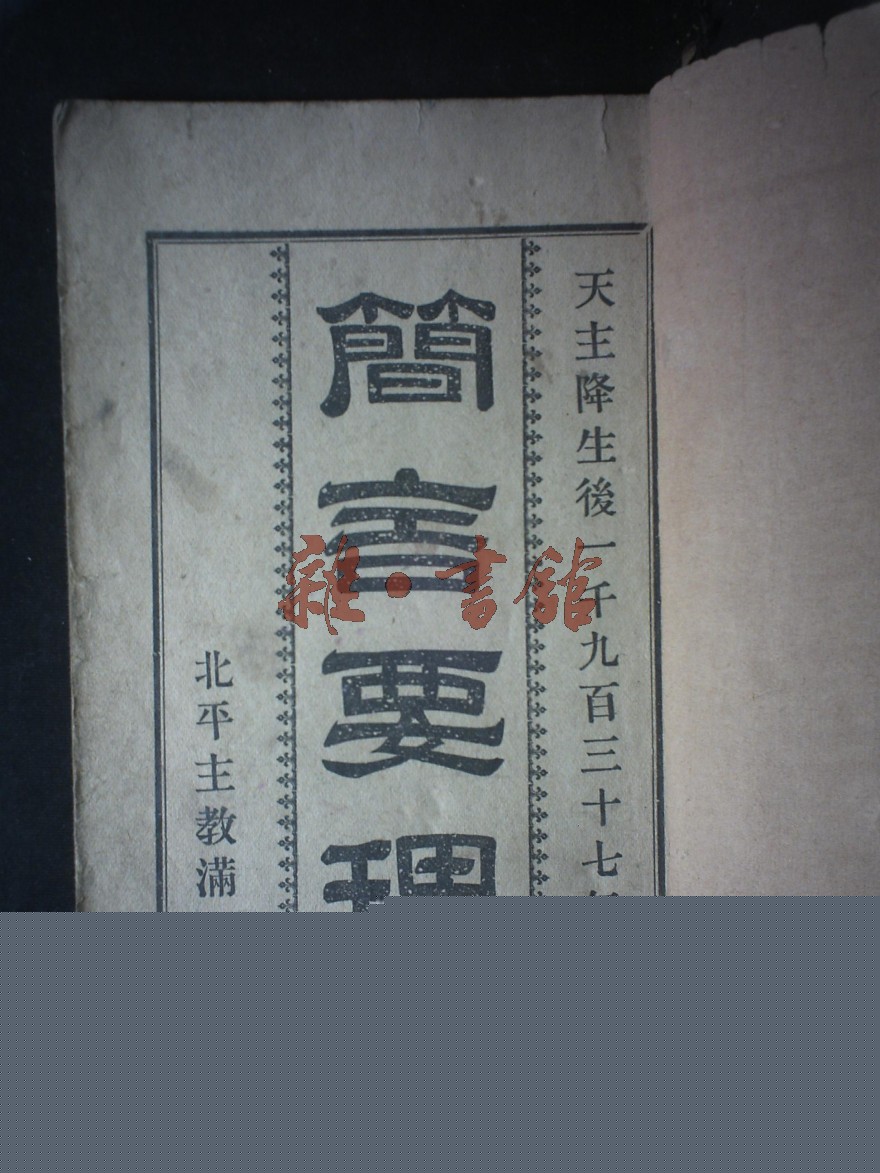 天主降生後一千九百三十七年
簡言要理
北平主教滿
雜·書館